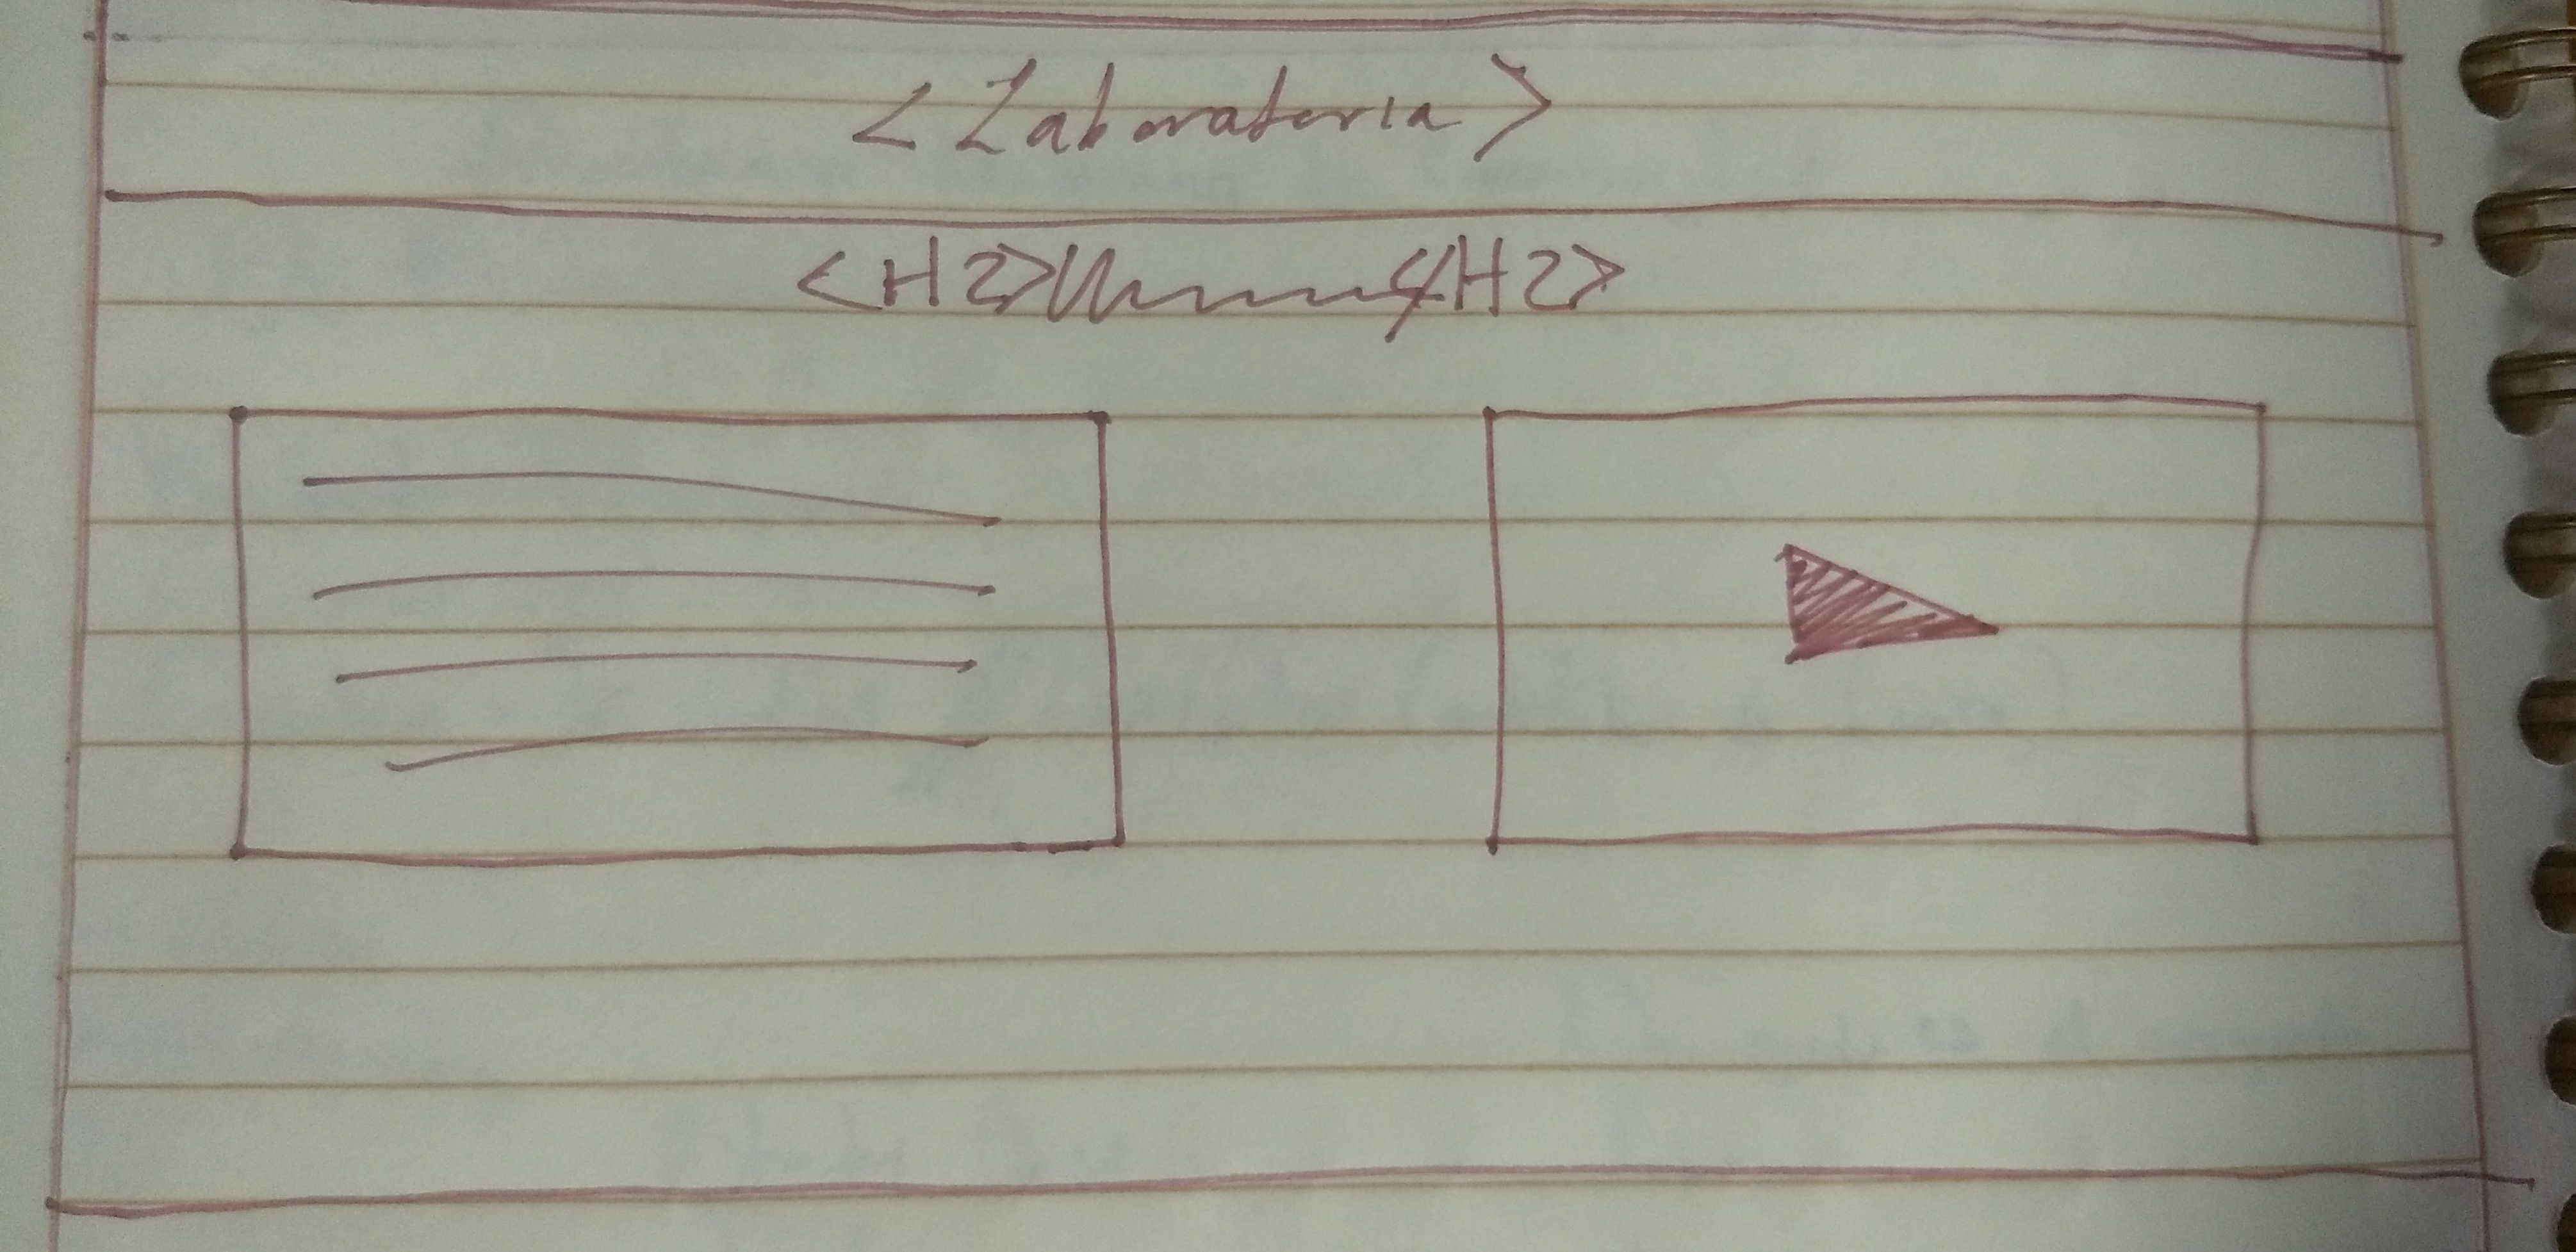 <Laboratoria>
<H2></H2>